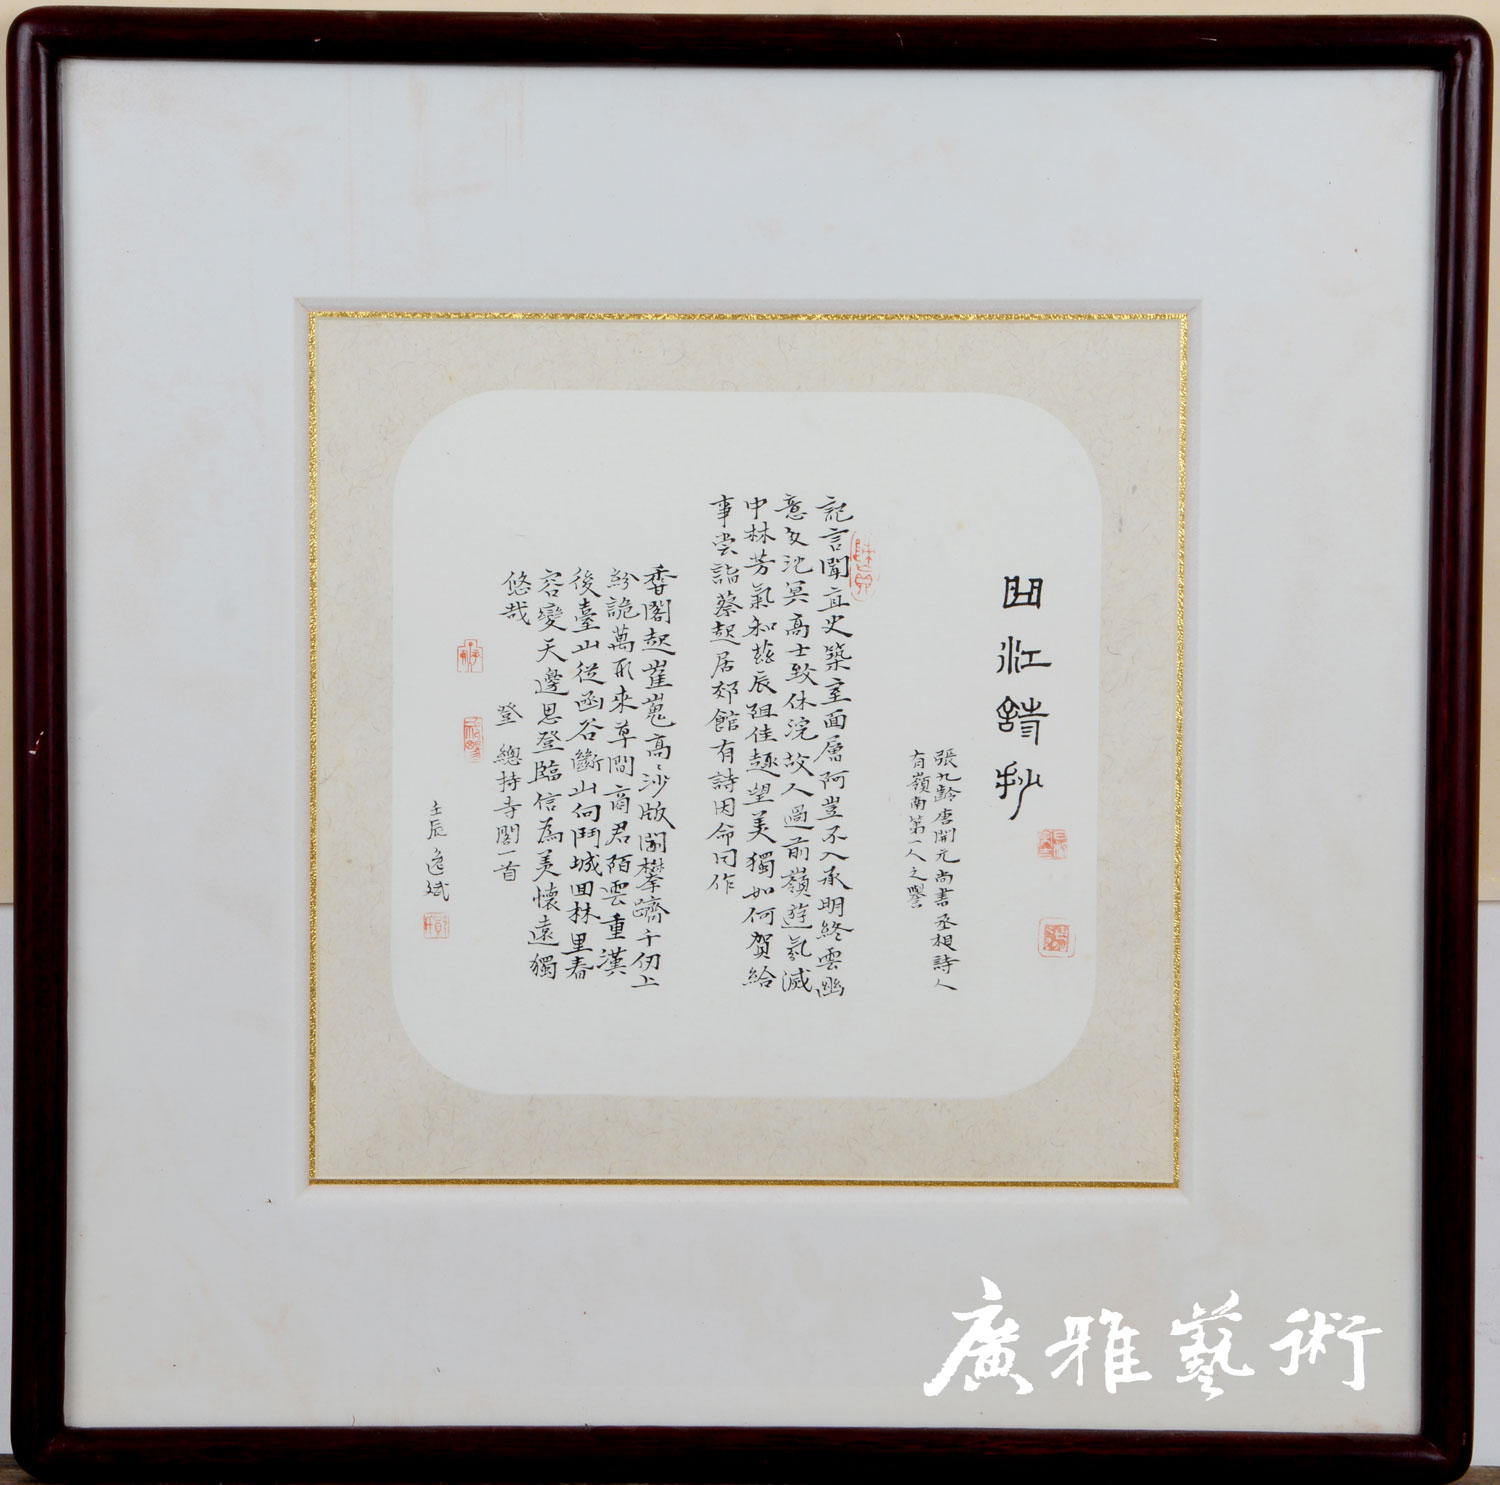 曲江詩抄
張九齡唐開元尚書丞相詩人
有嶺南第一人之譽
記言聞直史築室面層阿豈不入承明終雲幽
意多沈冥高士致休浣故人過前嶺遊氛滅
中林芳氣和茲辰阻佳趣望美獨如何賀給
事嘗詣蔡起居郊館有詩因命同作
香閣起崔嵬高〻沙版開攀躋千仞上
紛詭萬形來草間商君陌雲重漢
後臺山從函谷斷山向鬥城回林里春
容變天邊思登臨信為美懷遠獨
悠哉 登總持寺閣一首
壬辰逸斌
廣雅藝術